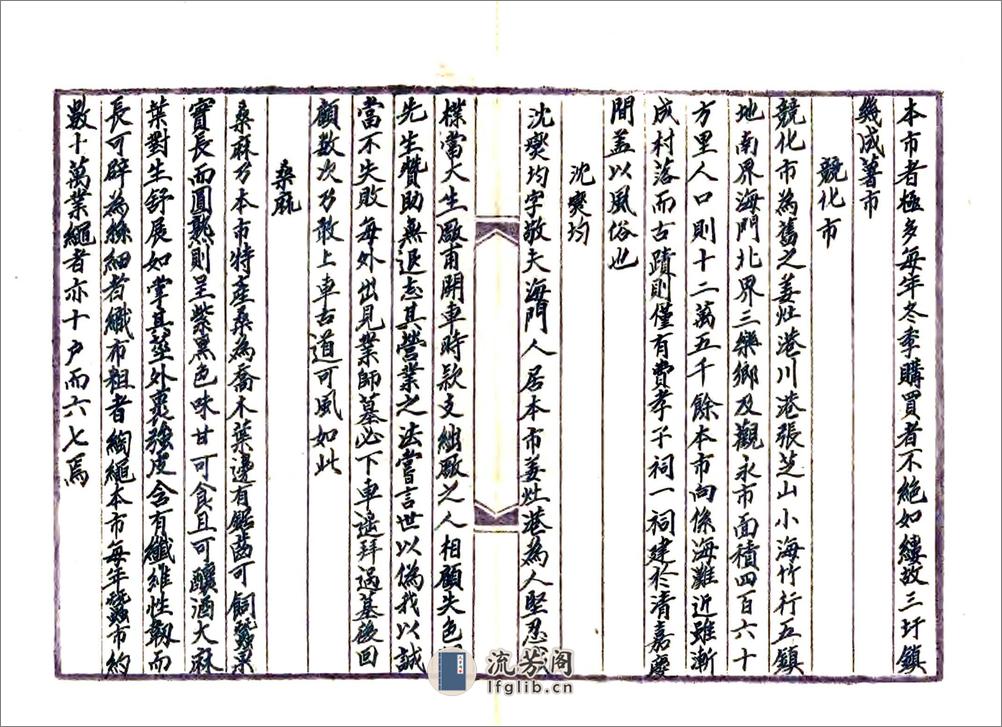 本市者極多每年冬季購買者不絕如縷故三圩鎮
幾成薯市
競化市
競化市為舊之姜灶港川港張芝山小海竹行五鎮
地南界海門北界三樂鄉及觀永市面積四百六十
方里人口則十二萬五千餘本市向係海灘近雖漸
成村落而古蹟則僅有費孝子祠一祠建於清嘉慶
間蓋以風俗也
沈燮均
沈燮均字敬夫海門人居本市姜灶港為人堅忍
樸當大生廠甫開車時款支絀廠之人相顧失色
先生贊助無退志其營業之法嘗言世以偽我以誠
當不失敗每外出見業師墓必下車遙拜過墓後回
顧數次乃敢上車古道可風如此
桑麻
桑麻乃本市特產桑為喬木葉邊有鋸齒可飼蠶果
實長而圓熟則呈紫黑色味甘可食且可釀酒大麻
葉對生舒展如掌其莖外裹強皮含有纖維性韌而
長可辟為絲細者織布粗者綯繩本市每年蠶市約
數十萬業繩者亦十戶而六七焉
流芳阁
lfglib.cn